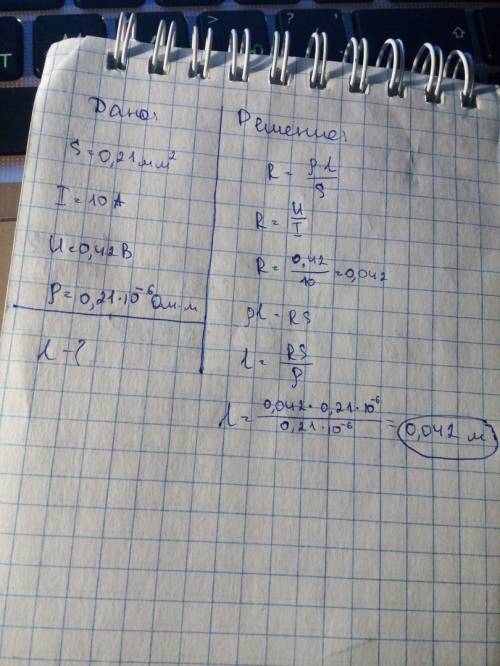 Дано:
S = 0,21 мм²
I = 10 A
U = 0,42 В
ρ = 0,21·10⁻⁶ Ом·м
l - ?
Решение:
R = ρ·l/S
R = U/I
R = 0,42/10 = 0,042
ρl = RS
l = RS/ρ
l = 0,042·0,21·10⁻⁶/0,21·10⁻⁶ = 0,042 м